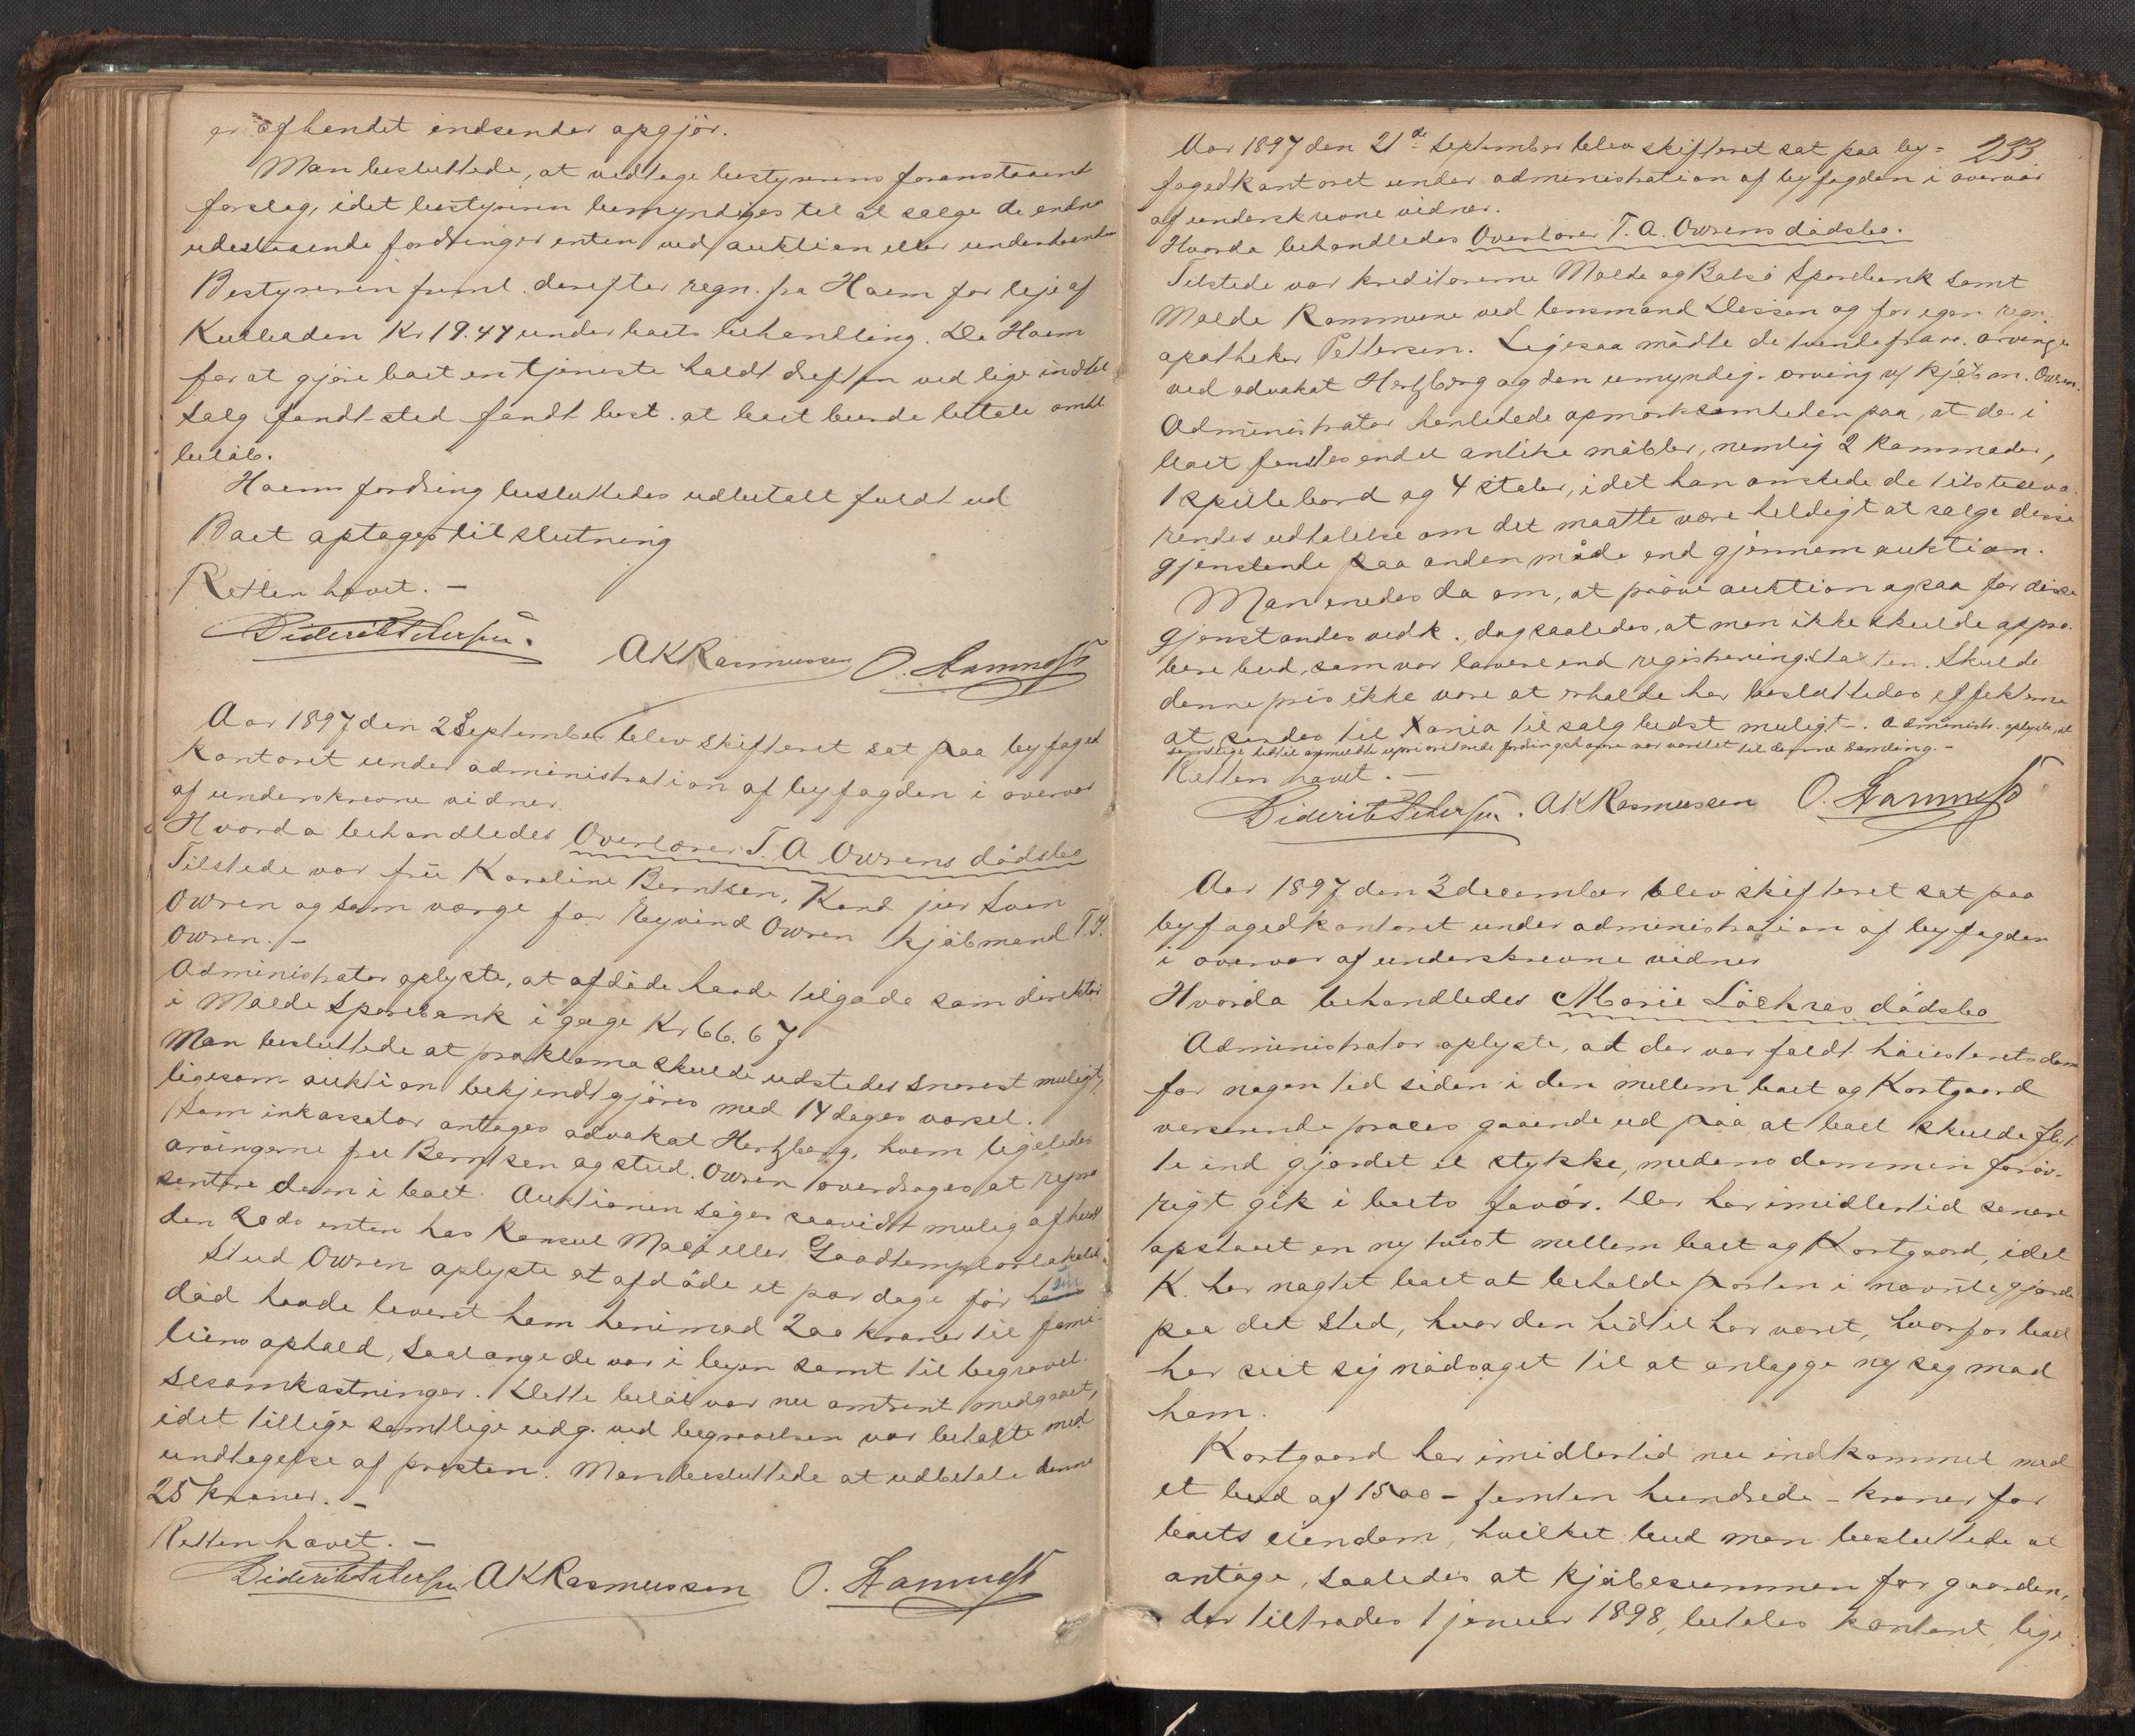 er afhendet indsender opgjör.
Man besluttede, at vedtage bestyrerens foranstaaende
forslag, idet bestyreren bemyndiges til at sælge de endnu
udestaaende fordringer enten ved auktion eller underhaanden
Bestyreren freml. derefter regn. fra Haem for leje af
Kr 19.47 under boets behandling. Da Haem
for at gjøre boet en tjeneste holdt driften ved lige indtil
salg fandt sted fandt best. at boet burde betale omhl.
beløb.
Haems fordring besluttedes udbetalt fuldt ud
Boet optages til slutning
Retten hævet. –
Diderik Petersen. AKRasmussen O. Hamnes
Aar 1897 den 2 September blev skifteret sat paa byfoged
kontoret under administration af byfogden i overvær
af underskrevne vidner.
Hvorda behandledes Overlærer T. A Owrens dödsbo
Tilstede var frü Karoline Berntsen, Kand jur Sven
Owren og som værge for Eyvind Owren kjöbmand T. J.
Owren. –
Administrator oplyste, at afdöde havde tilgode som direktör
i Molde Sparebank i gage Kr 66.67
Man besluttede at proklama skulde udstedes snarest muligt,
ligesom auktion bekjendtgjöres med 14 dages varsel.
Som inkassator antages advokat Hertzberg, hvem ligeledes
arvingerne fru Berntsen og stud. Owren overdroges at repræ
sentere dem i boet. Auktionen söges saavidt mulig afholdt
den 20 ds enten hos Konsul eller Goodtemplarlokalet.
Stud Owren oplyste at afdöde et par dage för sin
död havde leveret ham henimod 200 kroner til fami-
liens ophold, saalænge de var i byen samt til begravel-
sesomkostninger. Dette belöb var nu omtrent medgaaet,
idet tillige samtlige udg. ved begravelsen var betalte med
undtagelse af præsten. Man besluttede at udbetale denne
25 kroner. –
Retten hævet. –
Diderik Petersen AKRasmussen O. Hamnes
233
Aar 1897 den 21de September blev skifteret sat paa by=
fogedkontoret under administration af byfogden i overvær
af underskrevne vidner.
Hvorda behandledes Overlærer T. A. Owrens dödsbo.
Tilstede var kreditorerne Molde og Bolsö Sparebank samt
Molde Kommune ved lensmand Dessen og for egen regn.
apotheker Pettersen. Ligesaa mödte de tvende fravær. arvinge
ved advokat Hertzberg og den umyndig. arving v/ kjöbm. Owren.
Administrator henledede opmærksomheden paa, at der i
boet fandtes endel antike möbler, nemlig 2 kommoder,
1 spillebord og 4 stoler, idet han önskede de tilstedeva-
rendes udtalelse om det maatte være heldigt at sælge disse
gjenstande paa anden måde end gjennem auktion.
Man enedes da om, at pröve auktion ogsaa for disse
gjenstandes vedk., dog saaledes, at man ikke skulde appro-
bere bud, som var lavere end registreringstaxten. Skulde
denne pris ikke være at erholde her besluttedes effekterne
at sendes til Xania til salg bedst muligt –. Administr. oplyste, at
samtlige hidtil anmeldte uprioriterede fordringshavere var varslet til denne samling. –
Retten hævet. –
Diderik Petersen. AKRasmussen O. Hamnes
Aar 1897 den 3 december blev skifteret sat paa
byfogedkontoret under administration af byfogden
i overvær af underskrevne vidner
Hvorda behandledes Marie Löchres dödsbo
Administrator oplyste, at der var faldt höiesteretsdom
for nogen tid siden i den mellem boet og Kortgaard
verserende proces gaaende ud paa at boet skulde flyt
te ind gjærdet et stykke, medens dommen forøv-
rigt gik i boets favör. Der har imidlertid senere
opstaaet en ny tvist mellem boet og Kortgaard, idet
K. har nægtet boet at beholde porten i nævnte gjærde
paa det sted, hvor den hidtil har været, hvorfor boet
har seet sig nödsaget til at anlægge ny sag mod
ham.
Kortgaard har imidlertid nu indkommet med
et bud af 1500 – femten hundrede – kroner for
boets eiendom, hvilket bud man besluttede at
antage, saaledes at kjöbesummen for gaarden,
der tiltrædes 1 januar 1898, betales kontant, lige-